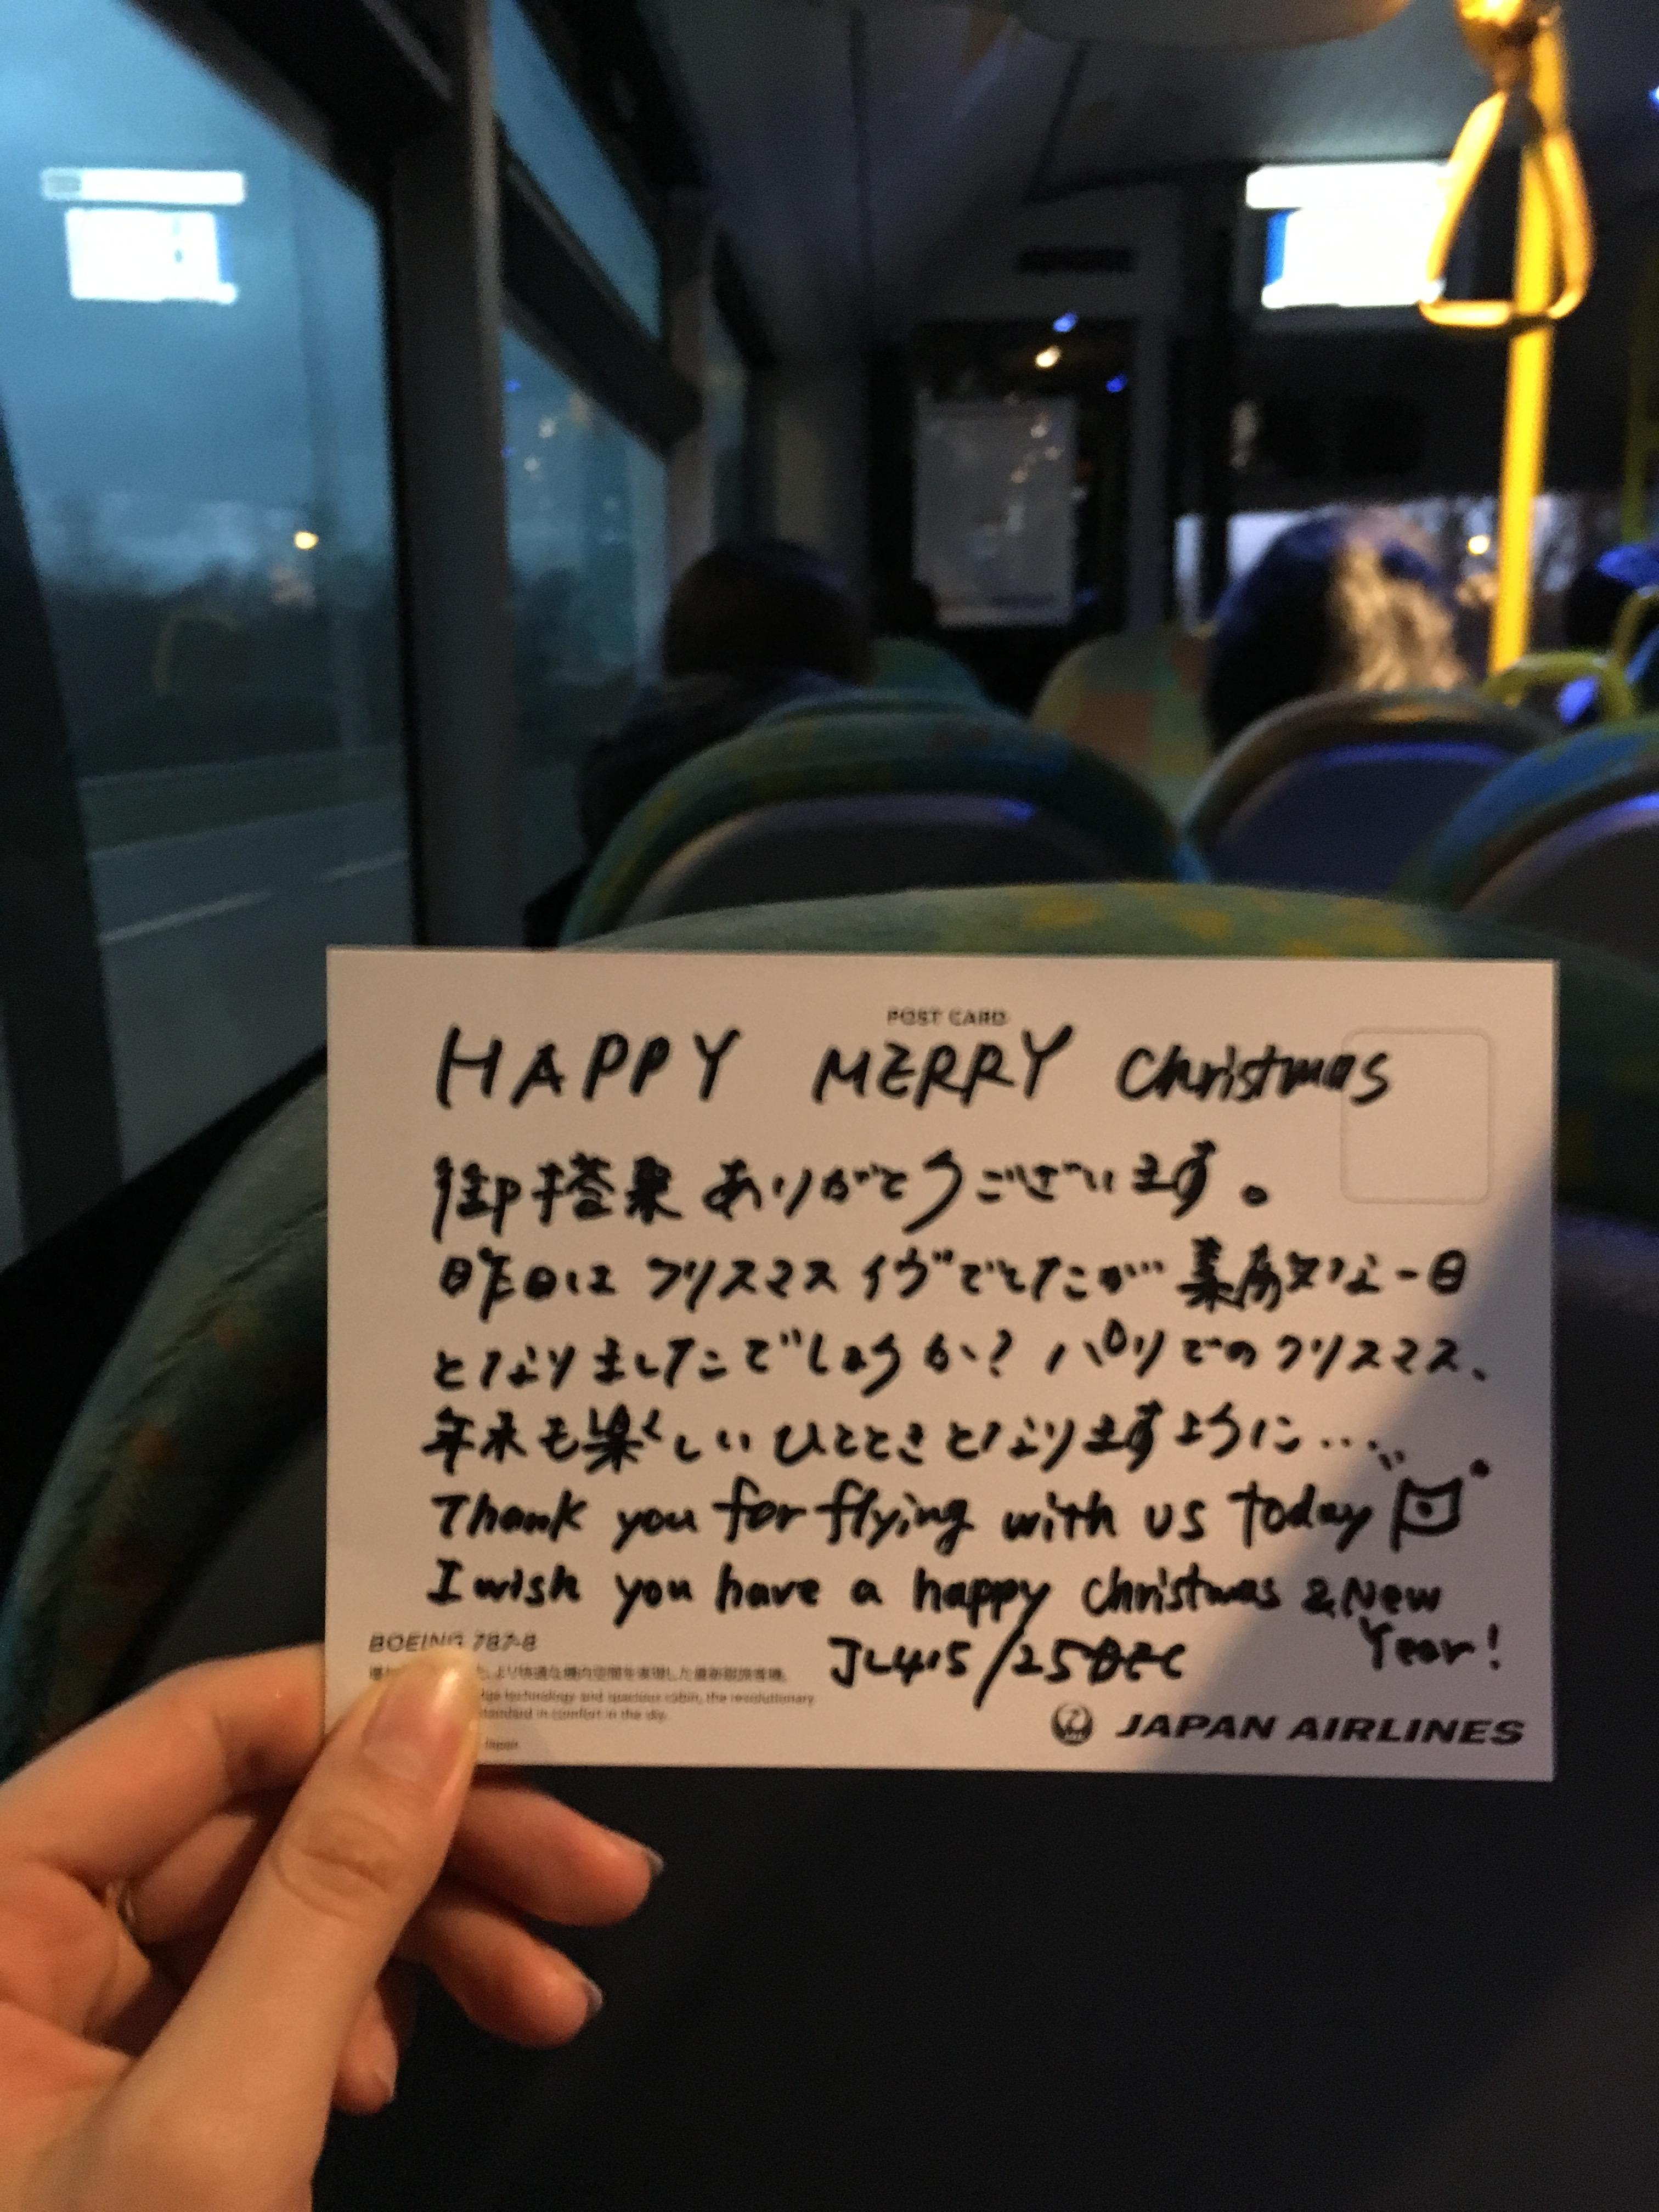 POST CARD
HAPPY MERRY Christmas
御搭乗ありがとうございます。
昨日はクリスマスイヴでしたが… 素敵な一日
となりましたでしょうか? パリでのクリスマス、
年末も楽しいひとときとなりますように…
Thank you for flying with us today
I wish you have a happy Christmas & New
Year!
JL415/25DEC
BOEING 787-8
より快適な機内空間を実現した最新鋭旅客機。
technology and spacious cabin, the revolutionary
standard in comfort in the sky.
Japan
JAPAN AIRLINES